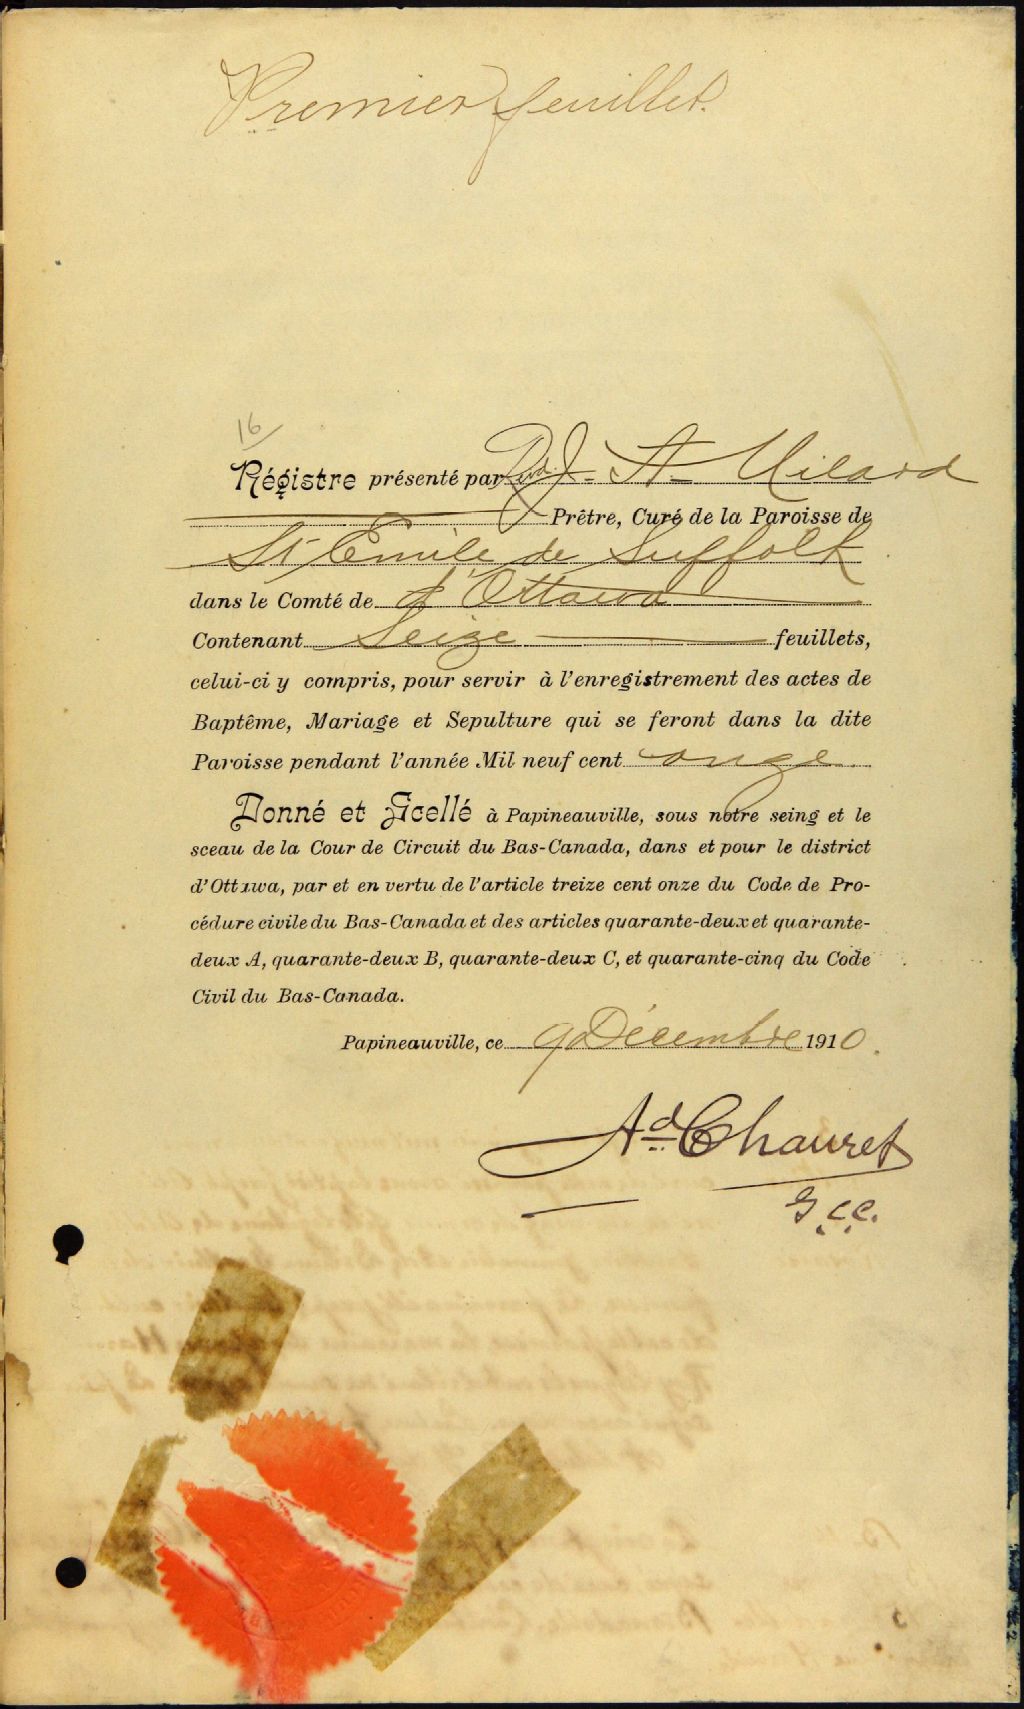 Premier feuillet.
16
Régistre présenté par Révd. J. A. Milard
Prêtre, Curé de la Paroisse de
St Emile de Suffolk
dans le Comté de d'Ottawa
Contenant Seize feuillets,
celui-ci y compris, pour servir à l'enregistrement des actes de
Baptême, Mariage et Sepulture qui se feront dans la dite
Paroisse pendant l'année Mil neuf cent onze
Donné et Scellé à Papineauville, sous notre seing et le
sceau de la Cour de Circuit du Bas-Canada, dans et pour le district
d'Ottawa, par et en vertu de l'article treize cent onze du Code de Pro-
cédure civile du Bas-Canada et des articles quarante-deux et quarante-
deux A, quarante-deux B, quarante-deux C, et quarante-cinq du Code
Civil du Bas-Canada.
Papineauville, ce 9 Décembre 1910.
Ad Chauret
G.C.C.